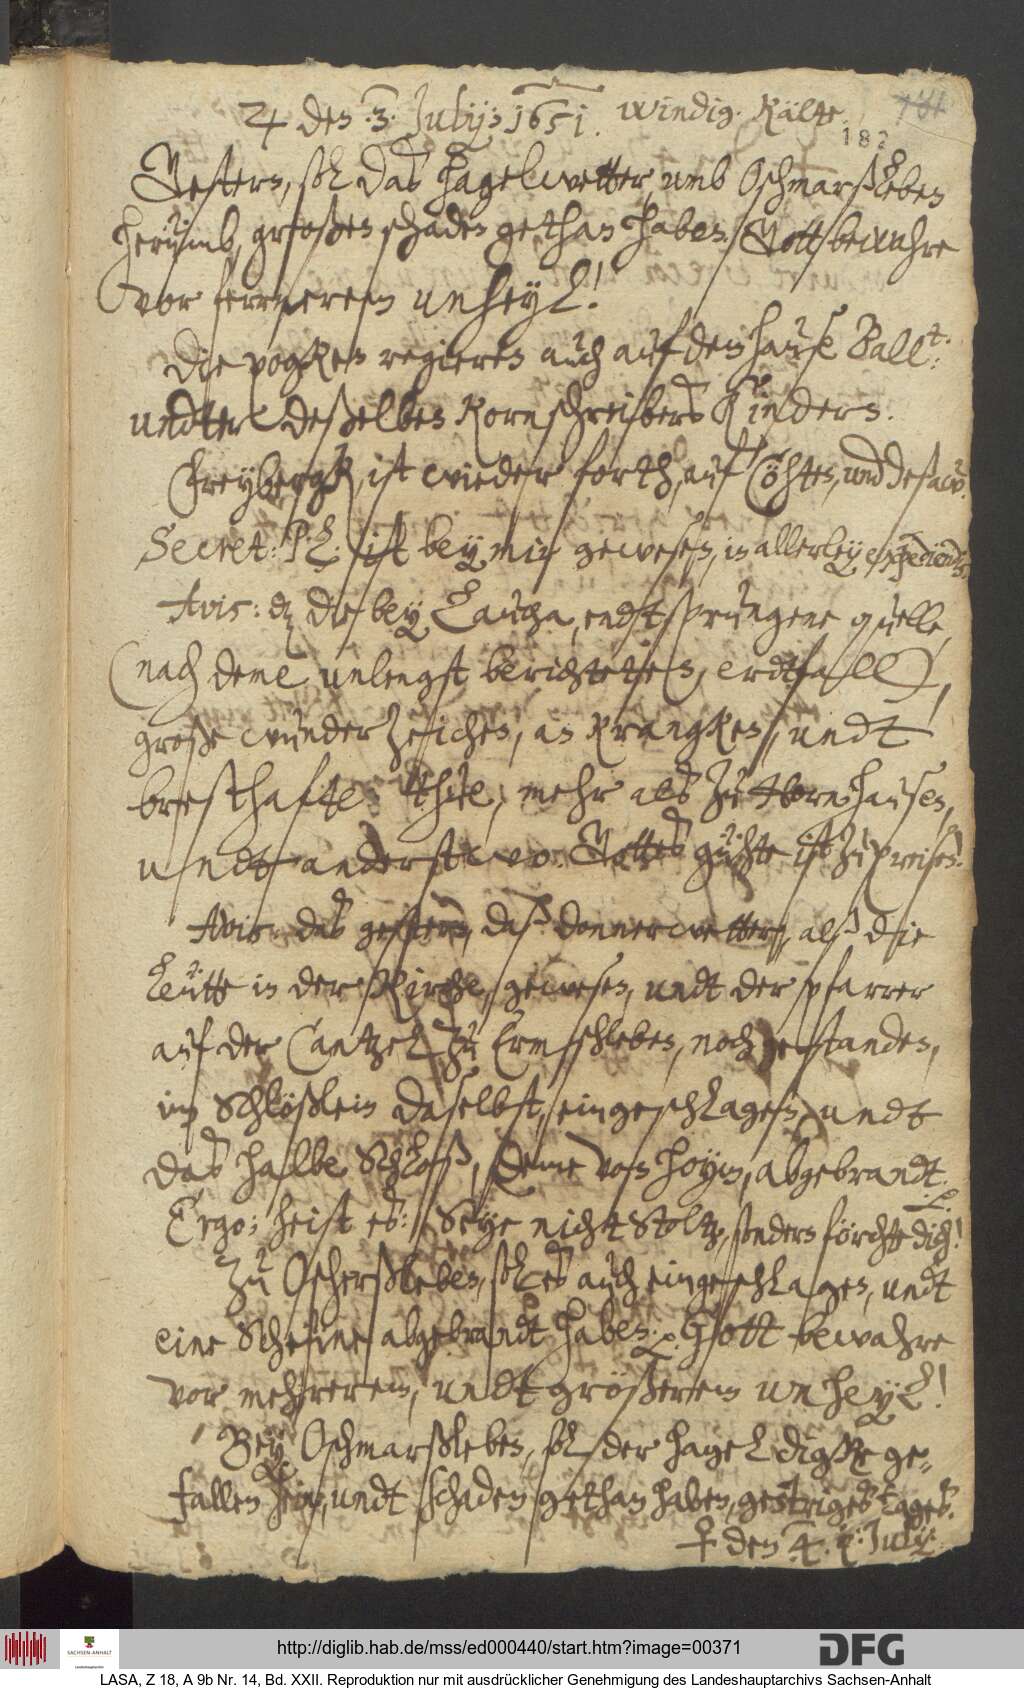 ♃ den .3. July: 1651. windig. Kälte.
181
182
Gestern, sol das hagelwetter, umb Oschmarßleben
herümb, großen schaden gethan haben. Gott bewahre
vor fernerem unheyl!
Die pogken regieren auch auf dem hause Ball.t:
undter deßelben Kornschreibers Kindern.
Freybergk, ist wieder forth, auf Cöhten, und Deßaw.
Secret: P. L. ist bey mir gewesen, in allerley expedien
Avis: dz die bey Laucha, endtsprungene quelle,
(nach deme unlengst berichtetem, erdtfall)
große wunderzeichen, an krangken, undt
bresthafte thue, mehr als zu Hornhausen,
undt anderstwo. Gottes gühte ist zu preisen.
Avis: das gestern, daß donnerwetter, alß die
Leütte in der Kirche, gewesen, undt der pfarrer
auf der Cantzel zu Ermschleben, noch gestanden,
im Schlößlein daselbst, eingeschlagen, undt
das halbe Schloß, deme von Hoym, abgebrandt.
Ergo: heist es: Seye nicht Stoltz, sondern förchte dich!
Zu Oscherßleben, sol es auch eingeschlagen, undt
eine Scheüne abgebrandt haben. Gott bewahre
vor mehrerem, undt größerem unheyl!
Bey Oschmarßleben, sol der hagel digke ge-
fallen sein, undt schaden gethan haben, gestriges Tages.
♀ den 4. July:
http://diglib.hab.de/mss/ed000440/start.htm?image=00371
SACHSEN-ANHALT
Landeshauptarchiv
DFG
LASA, Z 18, A 9b Nr. 14, Bd. XXII. Reproduktion nur mit ausdrücklicher Genehmigung des Landeshauptarchivs Sachsen-Anhalt